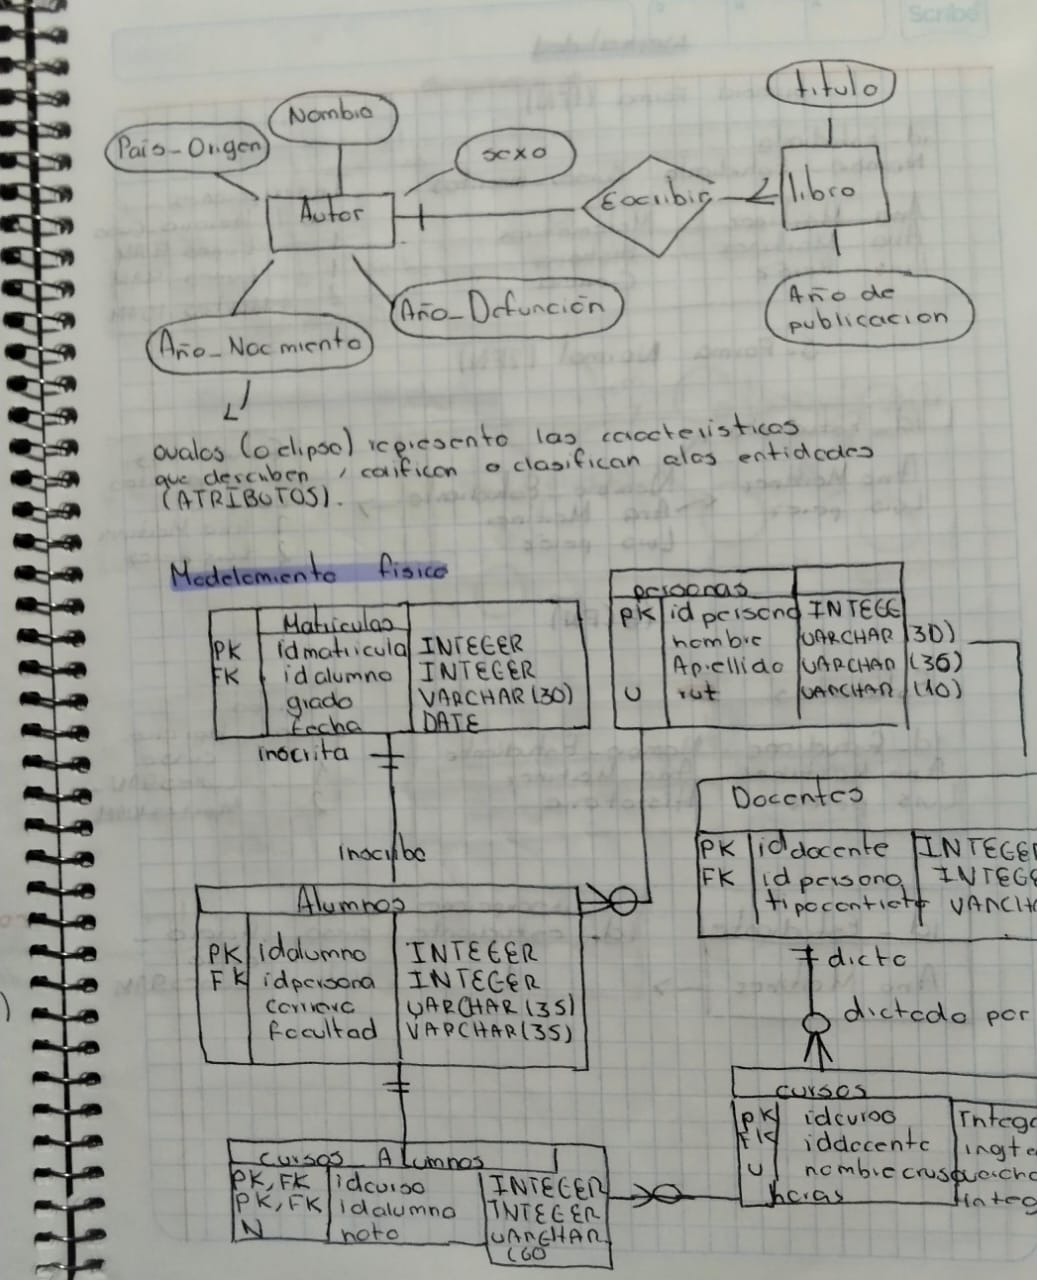 Scribe
titulo
Nombre
Pais_Origen
sexo
Autor
Escribir
libro
Año_Defunción
Año de
publicacion
Año_Nacimiento
ovalos (o elipse) representa las caracteristicas
que describen, califican o clasifican alas entidades
(ATRIBUTOS).
Modelamiento fisico
Matriculas
PK idmatricula INTEGER
FK idalumno INTEGER
grado VARCHAR(30)
fecha DATE
inscrita
inscribe
personas
PK id persona INTEGE
nombre VARCHAR(30)
Apellido VARCHAR(36)
U rut VARCHAR(10)
Docentes
PK iddocente INTEGER
FK idpersona INTEGE
tipocontrato VARCHA
dicta
dictado por
Alumnos
PK idalumno INTEGER
FK idpersona INTEGER
carrera VARCHAR(35)
facultad VARCHAR(35)
cursos
PK idcurso Intege
FK iddocente ingte
U nombrecrus varcha
horas integ
cursos Alumnos
PK, FK idcurso INTEGER
PK, FK idalumno INTEGER
N nota VARCHAR
(60